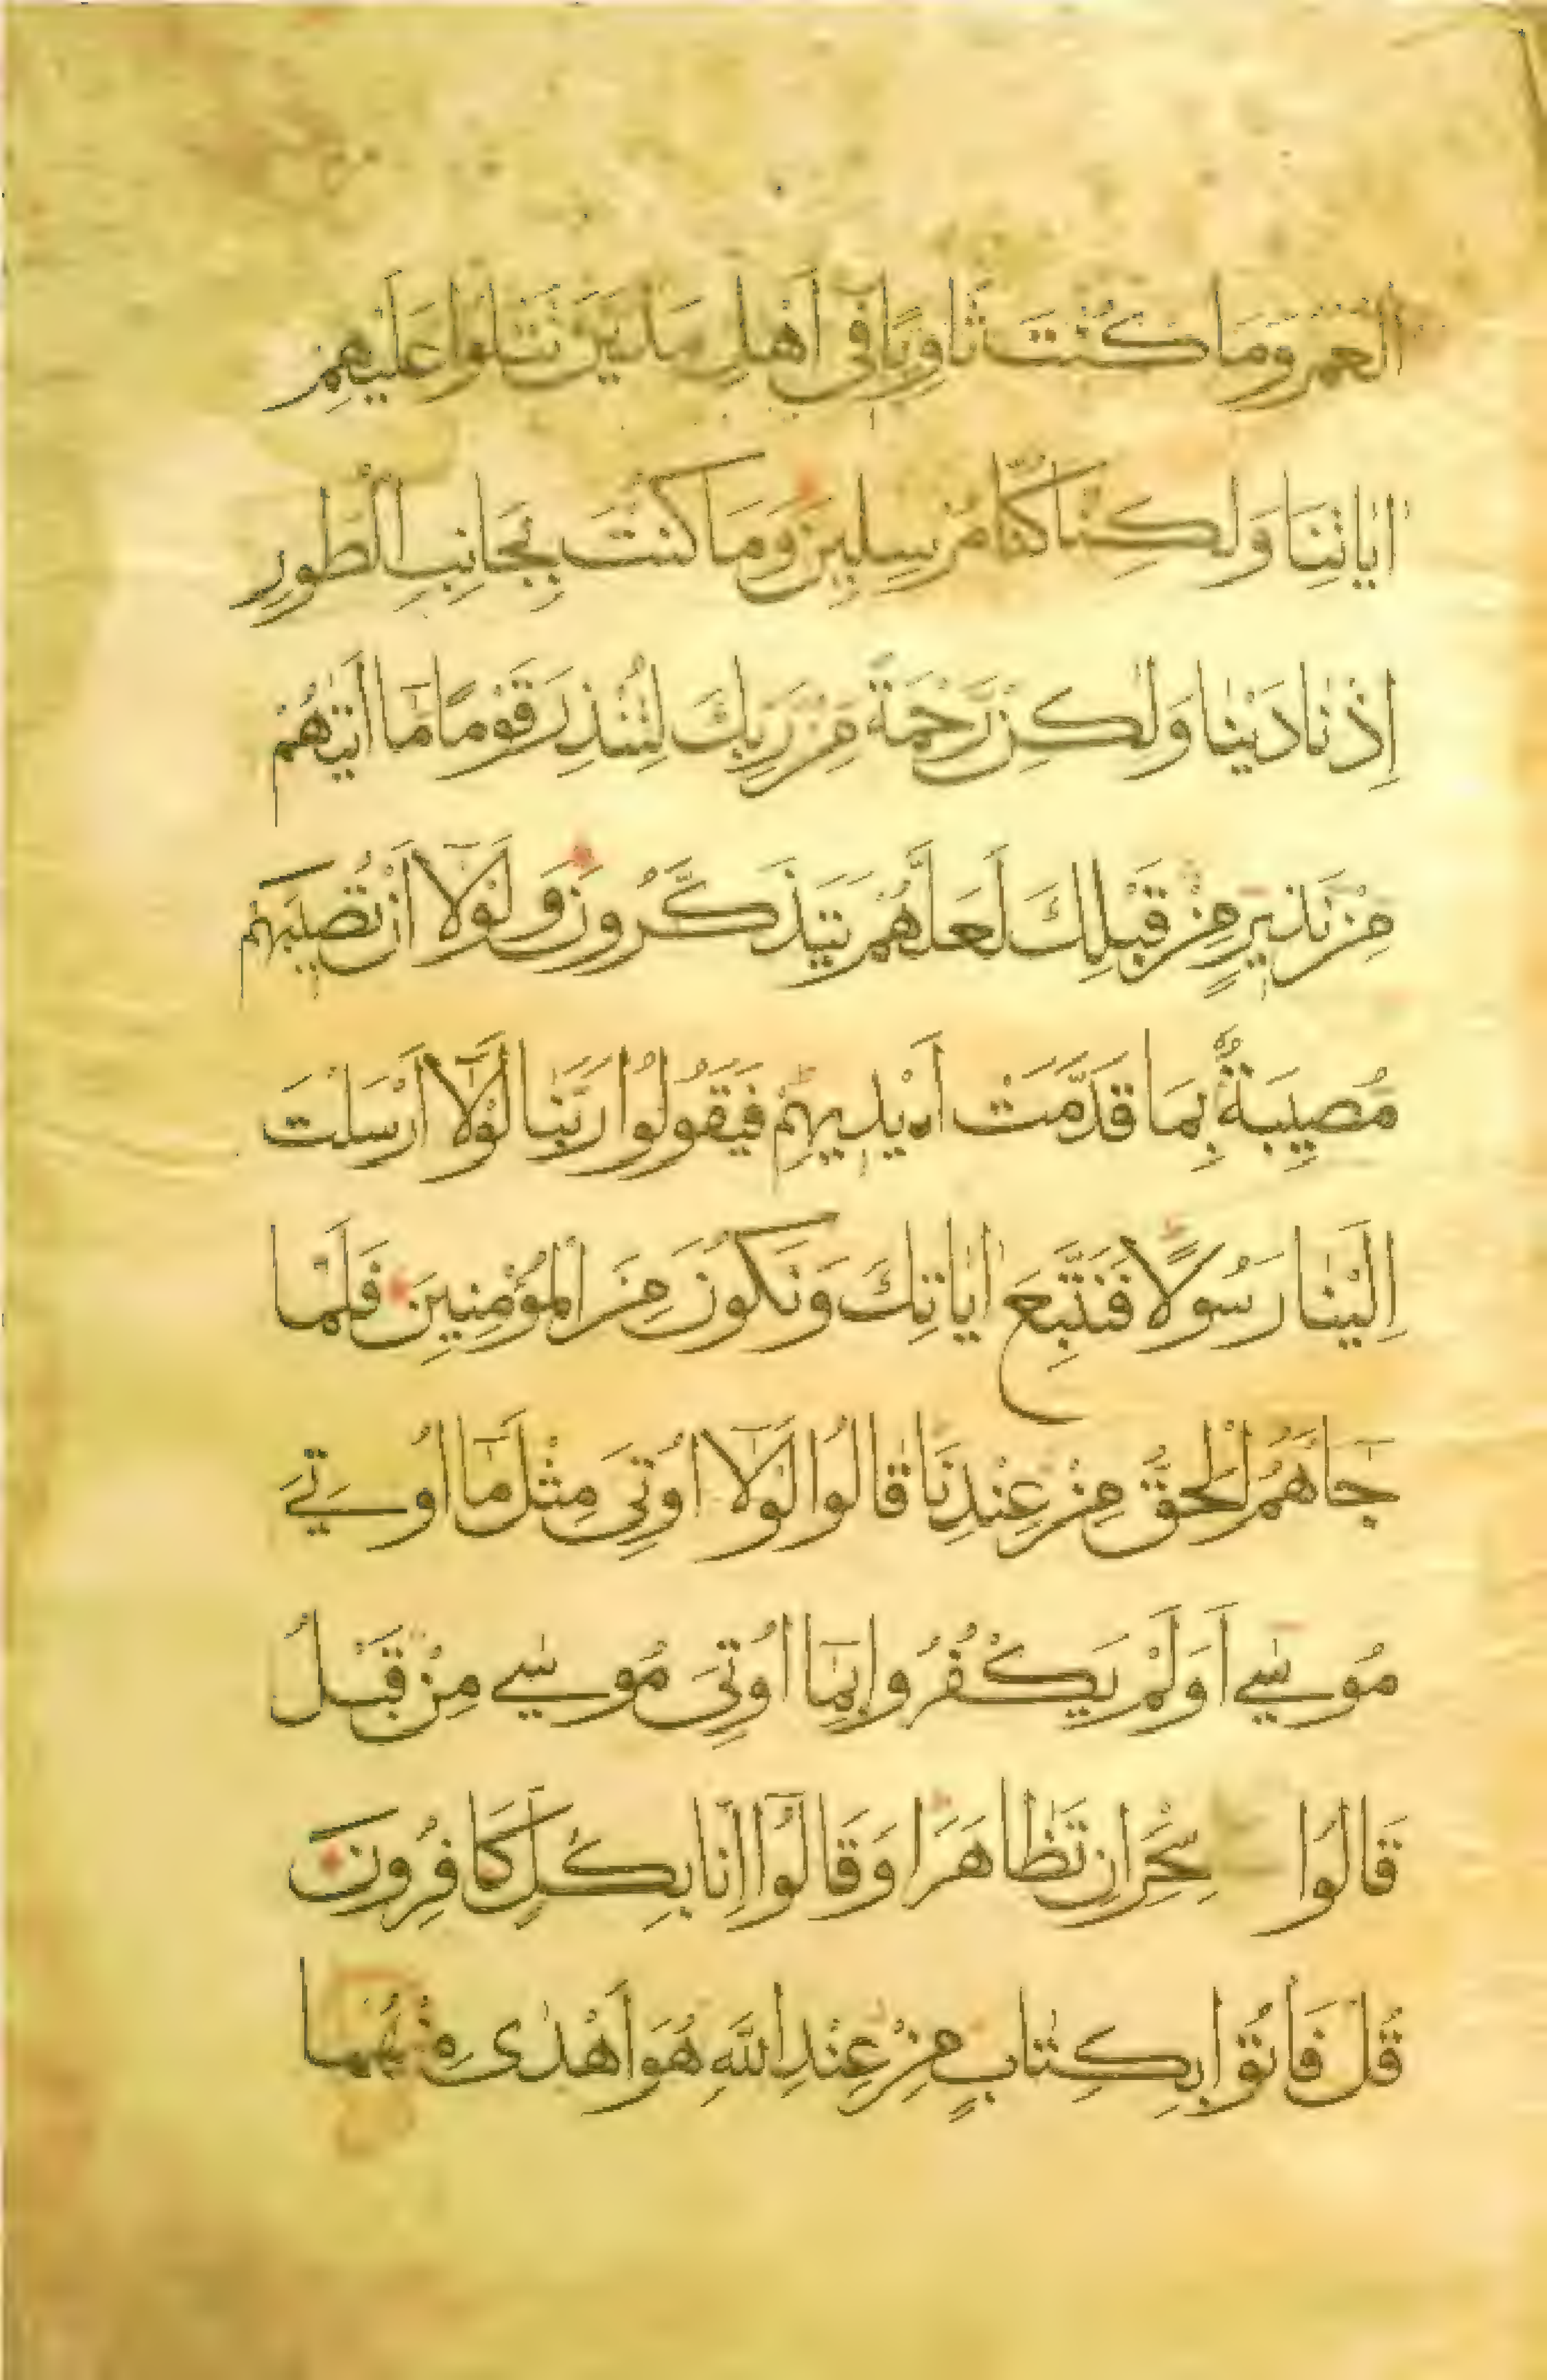 الْعُمُرُ وَمَا كُنْتَ ثَاوِيًا فِى اَهْلِ مَدْيَنَ تَتْلُوا عَلَيْهِمْ
اٰيَاتِنَا وَلٰكِنَّا كُنَّا مُرْسِلِينَ وَمَا كُنْتَ بِجَانِبِ الطُّورِ
اِذْ نَادَيْنَا وَلٰكِنْ رَحْمَةً مِنْ رَبِّكَ لِتُنْذِرَ قَوْمًا مَٓا اَتٰيهُمْ
مِنْ نَذِيرٍ مِنْ قَبْلِكَ لَعَلَّهُمْ يَتَذَكَّرُونَ وَلَوْلَٓا اَنْ تُصِيبَهُمْ
مُصِيبَةٌ بِمَا قَدَّمَتْ اَيْدِيهِمْ فَيَقُولُوا رَبَّنَا لَوْلَٓا اَرْسَلْتَ
اِلَيْنَا رَسُولًا فَنَتَّبِعَ اٰيَاتِكَ وَنَكُونَ مِنَ الْمُؤْمِنِينَ فَلَمَّا
جَٓاهُمُ الْحَقُّ مِنْ عِنْدِنَا قَالُوا لَوْلَٓا اُوتِىَ مِثْلَ مَٓا اُوتِيَ
مُوسٰي اَوَلَمْ يَكْفُرُوا بِمَٓا اُوتِىَ مُوسٰي مِنْ قَبْلُ
قَالُوا سِحْرَانِ تَظَاهَرَا وَقَالُٓوا اِنَّا بِكُلٍّ كَافِرُونَ
قُلْ فَاْتُوا بِكِتَابٍ مِنْ عِنْدِ اللّٰهِ هُوَ اَهْدٰى مِنْهُمَا